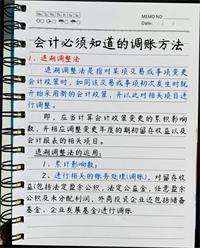 MEMO NO.
Date
会计必须知道的调账方法
1、追溯调整法
追溯调整法是指对某项交易或事项变更
会计政策时，如同该交易或事项初次发生时就
开始采用新的会计政策，并以此对相关项目进
行调整。
即，应当计算会计政策变更的累积影响
数，并相应调整变更年度的期初留存收益以及
会计报表的相关项目。
追溯调整法的运用：
1、累计影响数；
2、进行相关的账务处理(调账)，对留存收
益(包括法定盈余公积，法定公益金，任意盈余
公积及未分配利润，外商投资企业还包括储备
基金、企业发展基金)进行调账